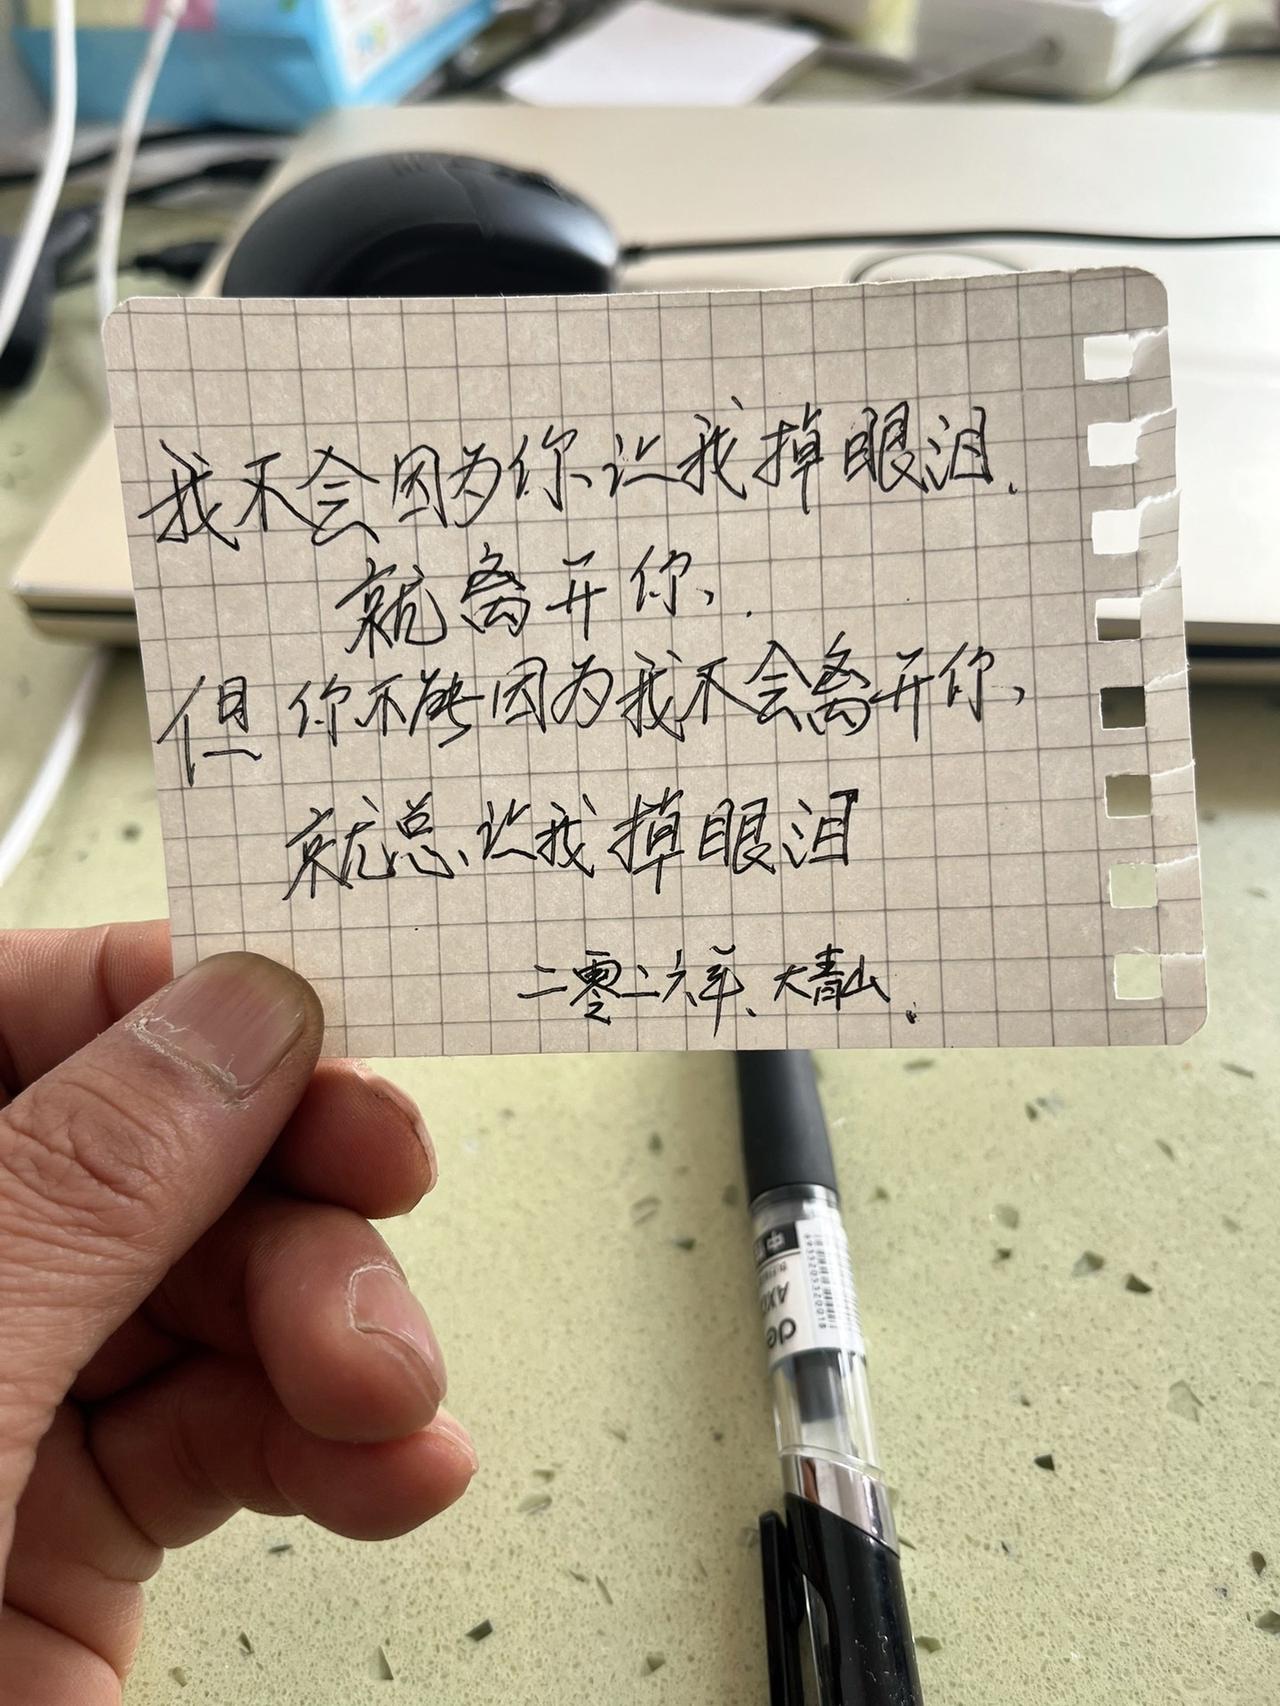 我不会因为你让我掉眼泪.
就离开你、.
但你不能因为我不会离开你,
就总让我掉眼泪
二零二六年、大青山.